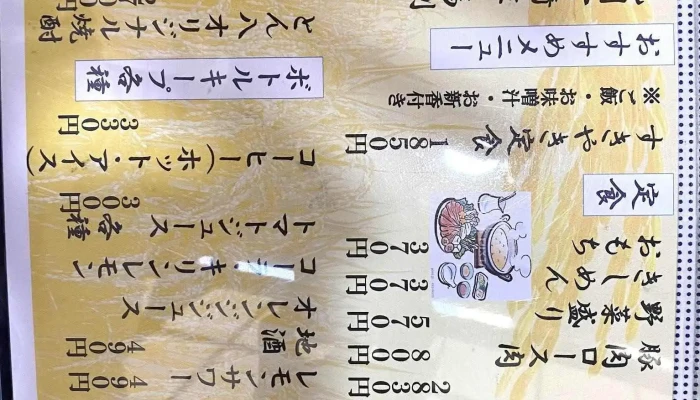 2830円
豚肉ロース肉 800円
野菜盛り 570円
きしめん 370円
おもち 370円
定食
すきやき定食 1850円
※ご飯・お味噌汁・お新香付き
おすすめメニュー
レモンサワー 490円
地酒 490円
オレンジジュース
コーラ・キリンレモン
トマトジュース 各種 300円
コーヒー(ホット・アイス) 330円
ボトルキープ各種
とん八オリジナル焼酎